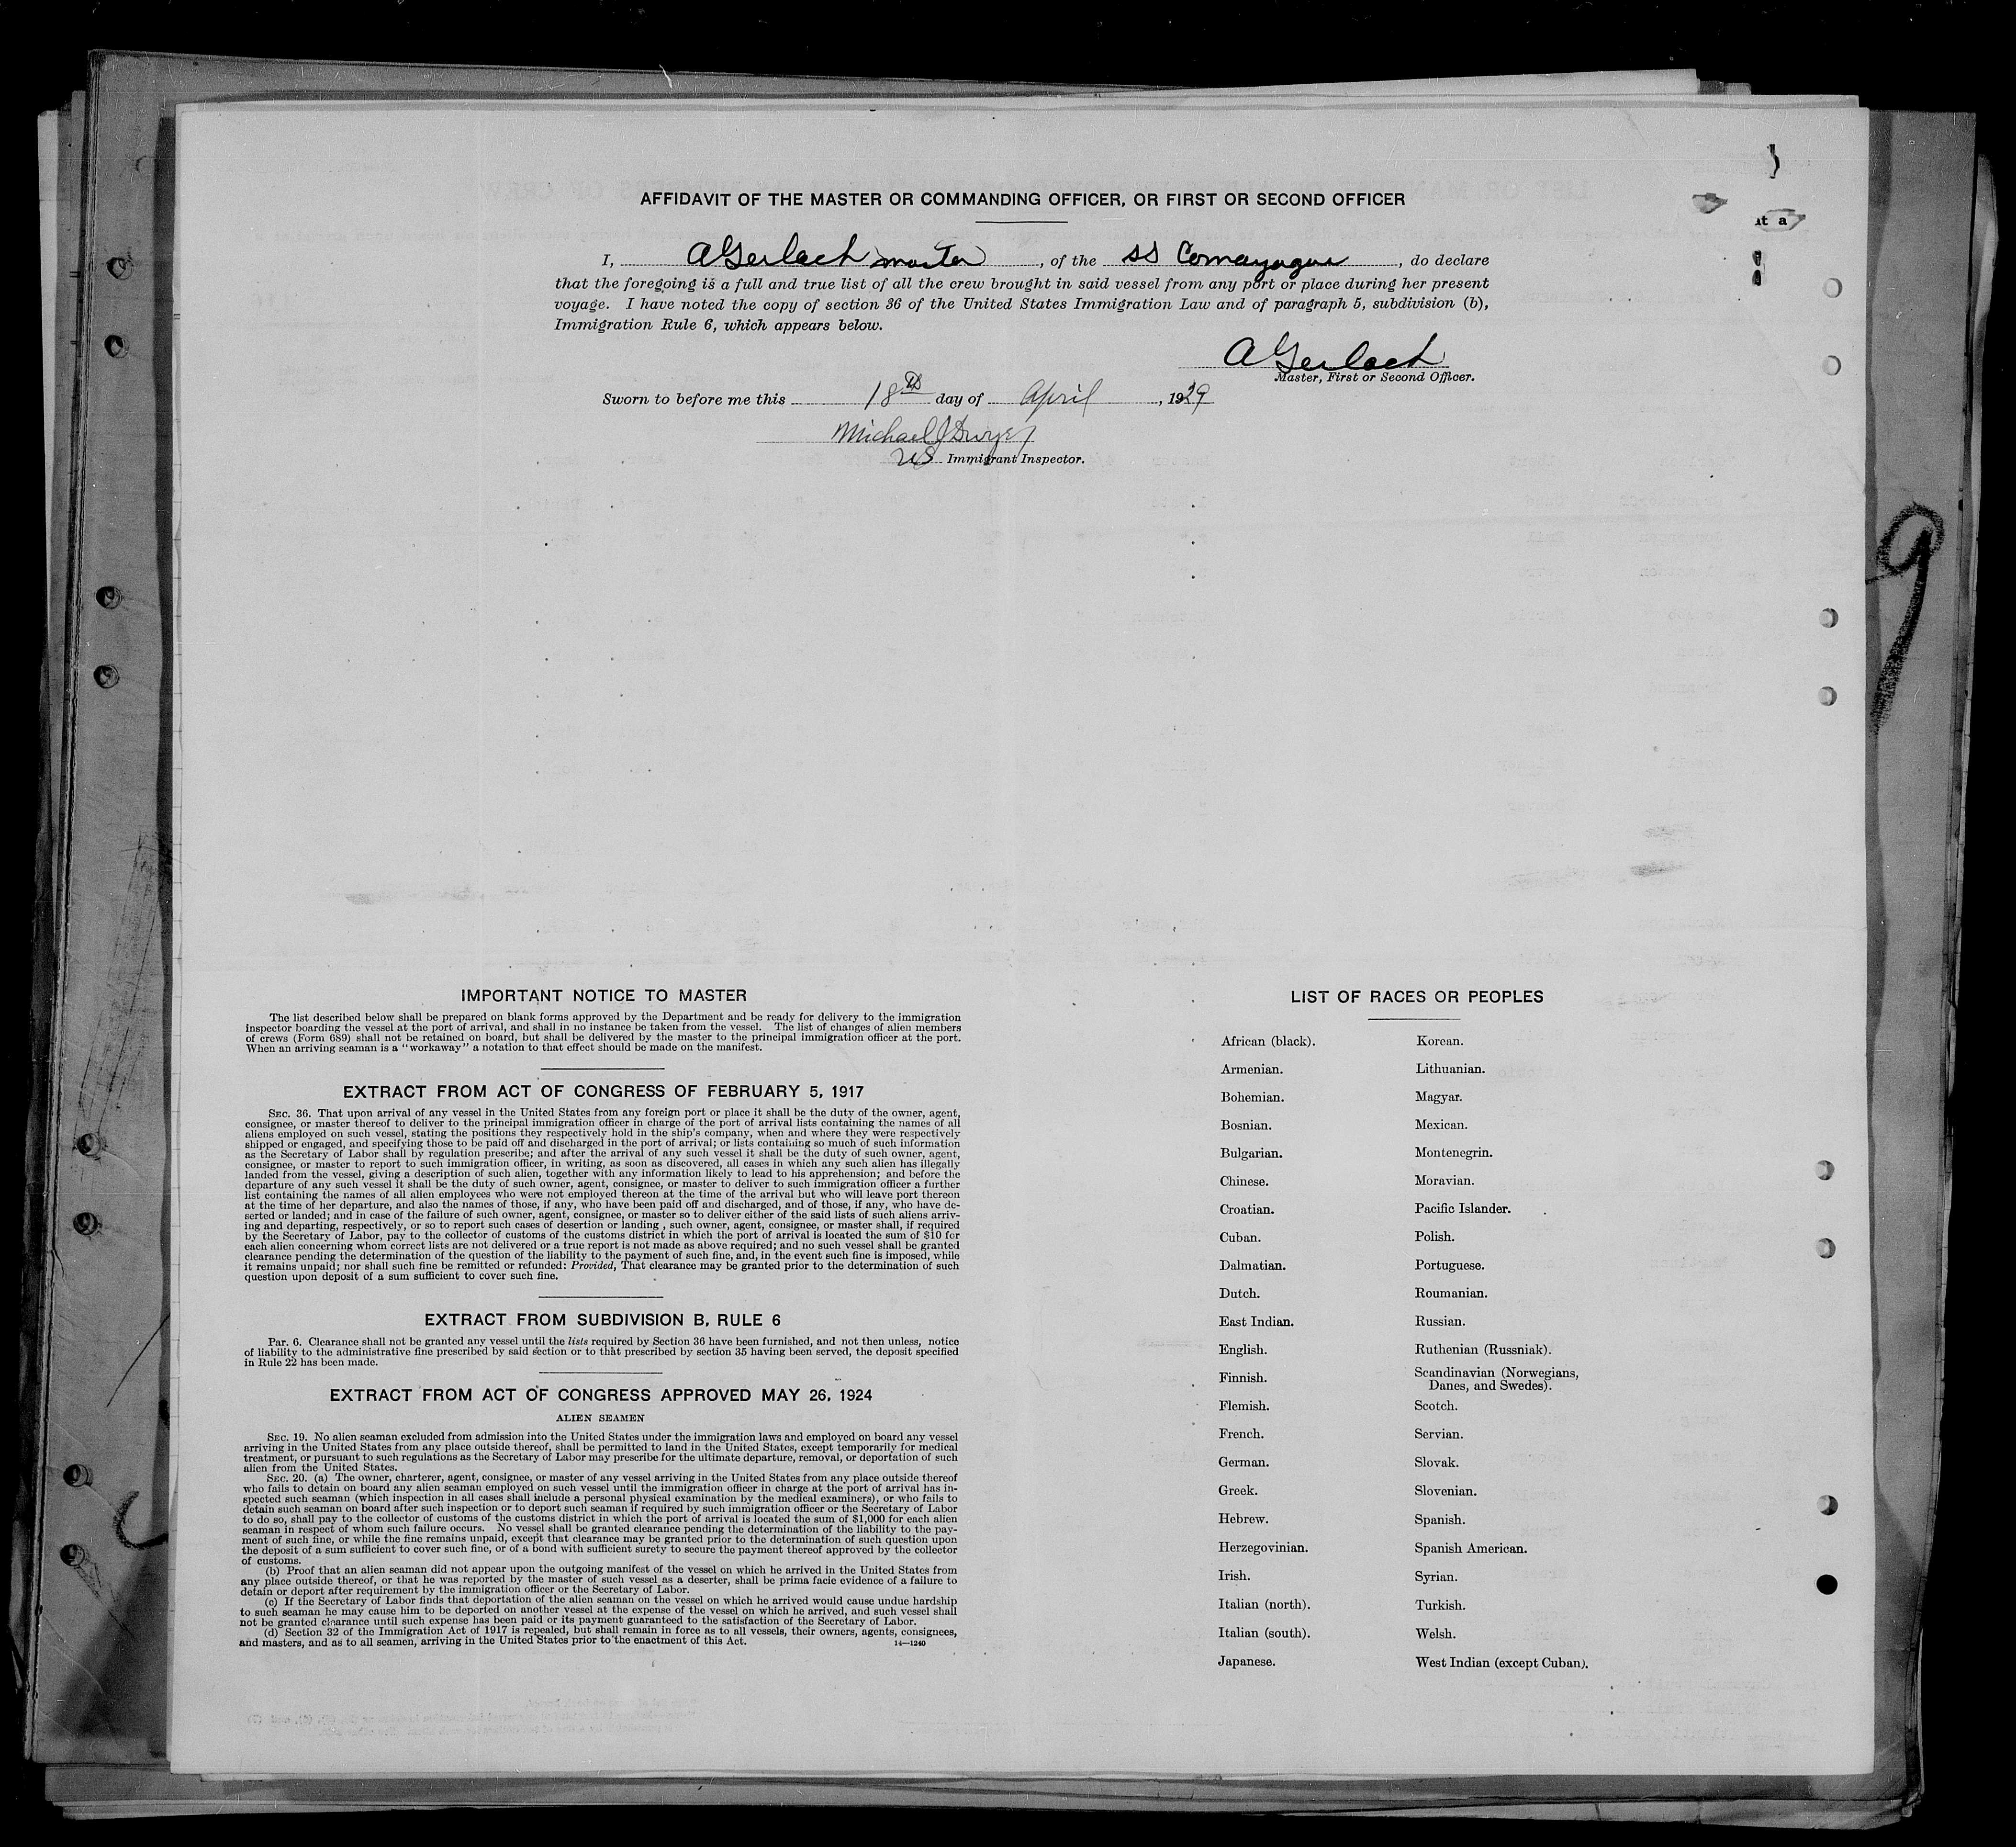 AFFIDAVIT OF THE MASTER OR COMMANDING OFFICER, OR FIRST OR SECOND OFFICER
I, A Gerlach master, of the SS Comayagua, do declare
that the foregoing is a full and true list of all the crew brought in said vessel from any port or place during her present
voyage. I have noted the copy of section 36 of the United States Immigration Law and of paragraph 5, subdivision (b),
Immigration Rule 6, which appears below.
A Gerlach
Master, First or Second Officer.
Sworn to before me this 18th day of April, 1929
Michael J Dwyer
US Immigrant Inspector.
t a
9
IMPORTANT NOTICE TO MASTER
The list described below shall be prepared on blank forms approved by the Department and be ready for delivery to the immigration
inspector boarding the vessel at the port of arrival, and shall in no instance be taken from the vessel. The list of changes of alien members
of crews (Form 689) shall not be retained on board, but shall be delivered by the master to the principal immigration officer at the port.
When an arriving seaman is a "workaway" a notation to that effect should be made on the manifest.
EXTRACT FROM ACT OF CONGRESS OF FEBRUARY 5, 1917
SEC. 36. That upon arrival of any vessel in the United States from any foreign port or place it shall be the duty of the owner, agent,
consignee, or master thereof to deliver to the principal immigration officer in charge of the port of arrival lists containing the names of all
aliens employed on such vessel, stating the positions they respectively hold in the ship's company, when and where they were respectively
shipped or engaged, and specifying those to be paid off and discharged in the port of arrival; or lists containing so much of such information
as the Secretary of Labor shall by regulation prescribe; and after the arrival of any such vessel it shall be the duty of such owner, agent,
consignee, or master to report to such immigration officer, in writing, as soon as discovered, all cases in which any such alien has illegally
landed from the vessel, giving a description of such alien, together with any information likely to lead to his apprehension; and before the
departure of any such vessel it shall be the duty of such owner, agent, consignee, or master to deliver to such immigration officer a further
list containing the names of all alien employees who were not employed thereon at the time of the arrival but who will leave port thereon
at the time of her departure, and also the names of those, if any, who have been paid off and discharged, and of those, if any, who have de-
serted or landed; and in case of the failure of such owner, agent, consignee, or master so to deliver either of the said lists of such aliens arriv-
ing and departing, respectively, or so to report such cases of desertion or landing , such owner, agent, consignee, or master shall, if required
by the Secretary of Labor, pay to the collector of customs of the customs district in which the port of arrival is located the sum of $10 for
each alien concerning whom correct lists are not delivered or a true report is not made as above required; and no such vessel shall be granted
clearance pending the determination of the question of the liability to the payment of such fine, and, in the event such fine is imposed, while
it remains unpaid; nor shall such fine be remitted or refunded: Provided, That clearance may be granted prior to the determination of such
question upon deposit of a sum sufficient to cover such fine.
EXTRACT FROM SUBDIVISION B, RULE 6
Par. 6. Clearance shall not be granted any vessel until the lists required by Section 36 have been furnished, and not then unless, notice
of liability to the administrative fine prescribed by said section or to that prescribed by section 35 having been served, the deposit specified
in Rule 22 has been made.
EXTRACT FROM ACT OF CONGRESS APPROVED MAY 26, 1924
ALIEN SEAMEN
SEC. 19. No alien seaman excluded from admission into the United States under the immigration laws and employed on board any vessel
arriving in the United States from any place outside thereof, shall be permitted to land in the United States, except temporarily for medical
treatment, or pursuant to such regulations as the Secretary of Labor may prescribe for the ultimate departure, removal, or deportation of such
alien from the United States.
SEC. 20. (a) The owner, charterer, agent, consignee, or master of any vessel arriving in the United States from any place outside thereof
who fails to detain on board any alien seaman employed on such vessel until the immigration officer in charge at the port of arrival has in-
spected such seaman (which inspection in all cases shall include a personal physical examination by the medical examiners), or who fails to
detain such seaman on board after such inspection or to deport such seaman if required by such immigration officer or the Secretary of Labor
to do so, shall pay to the collector of customs of the customs district in which the port of arrival is located the sum of $1,000 for each alien
seaman in respect of whom such failure occurs. No vessel shall be granted clearance pending the determination of the liability to the pay-
ment of such fine, or while the fine remains unpaid, except that clearance may be granted prior to the determination of such question upon
the deposit of a sum sufficient to cover such fine, or of a bond with sufficient surety to secure the payment thereof approved by the collector
of customs.
(b) Proof that an alien seaman did not appear upon the outgoing manifest of the vessel on which he arrived in the United States from
any place outside thereof, or that he was reported by the master of such vessel as a deserter, shall be prima facie evidence of a failure to
detain or deport after requirement by the immigration officer or the Secretary of Labor.
(c) If the Secretary of Labor finds that deportation of the alien seaman on the vessel on which he arrived would cause undue hardship
to such seaman he may cause him to be deported on another vessel at the expense of the vessel on which he arrived, and such vessel shall
not be granted clearance until such expense has been paid or its payment guaranteed to the satisfaction of the Secretary of Labor.
(d) Section 32 of the Immigration Act of 1917 is repealed, but shall remain in force as to all vessels, their owners, agents, consignees,
and masters, and as to all seamen, arriving in the United States prior to the enactment of this Act.
14—1240
LIST OF RACES OR PEOPLES
African (black).
Armenian.
Bohemian.
Bosnian.
Bulgarian.
Chinese.
Croatian.
Cuban.
Dalmatian.
Dutch.
East Indian.
English.
Finnish.
Flemish.
French.
German.
Greek.
Hebrew.
Herzegovinian.
Irish.
Italian (north).
Italian (south).
Japanese.
Korean.
Lithuanian.
Magyar.
Mexican.
Montenegrin.
Moravian.
Pacific Islander.
Polish.
Portuguese.
Roumanian.
Russian.
Ruthenian (Russniak).
Scandinavian (Norwegians,
Danes, and Swedes).
Scotch.
Servian.
Slovak.
Slovenian.
Spanish.
Spanish American.
Syrian.
Turkish.
Welsh.
West Indian (except Cuban).